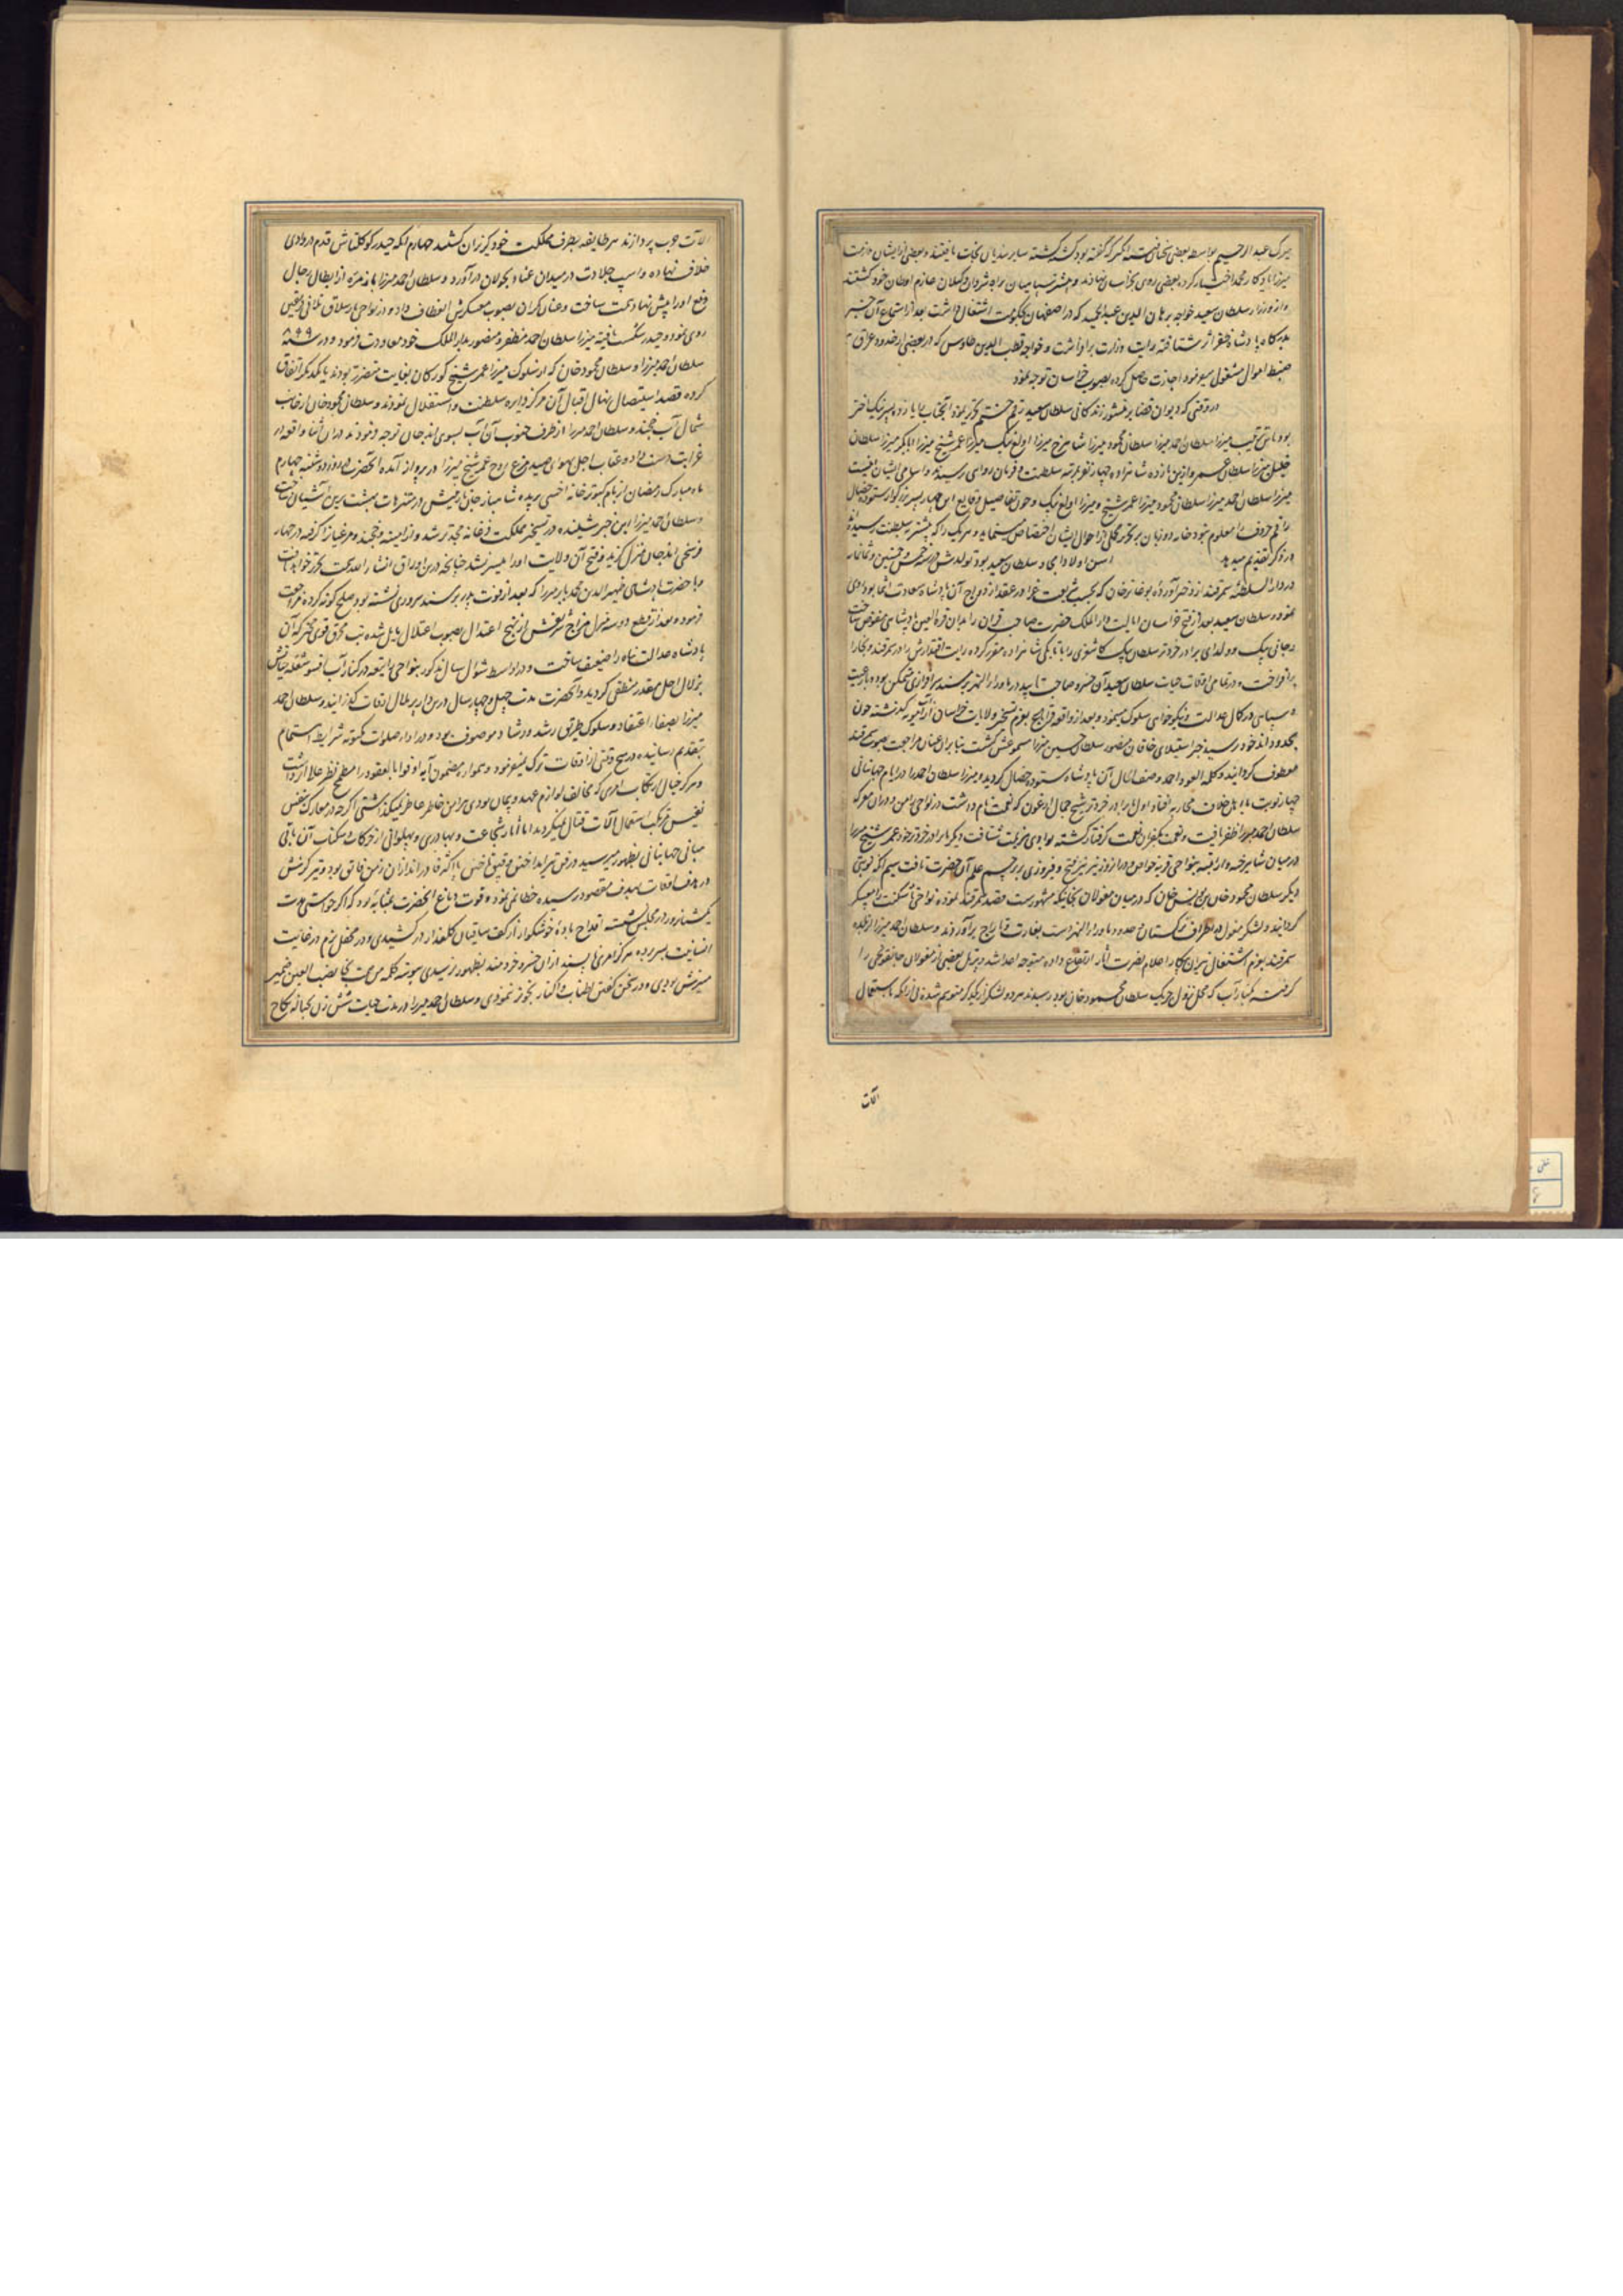 میرک عبد الرحیم بواسطه بعضی سخنان که گفته بود کشته گشته سایر بندیان نجات یافتند و بعضی از ایشان ملازمت
میرزا یادگار محمد اختیار کرده بعضی روی بخراسان نهادند و بیشتر سپاهیان براه شروان و گیلان عازم اوطان خود گشتند
و از وزراء سلطان سعید خواجه برهان الدین عبد الحمید که در اصفهان بحکومت اشتغال داشت بعد از استماع آن خبر
بدرگاه پادشاه شتافته رایت وزارت برافراشت و خواجه قطب الدین طاوس که در بعضی از حدود عراق
ضبط اموال مشغول میبود اجازت حاصل کرده بصوب خراسان توجه نمود
در وقتی که دیوان قضا بر منشور زندگانی سلطان سعید رقم ختم تحریر نمود آنجناب را یازده پسر نیک اختر
بود باین ترتیب میرزا سلطان احمد میرزا سلطان محمود میرزا شاهرخ میرزا الغ بیک میرزا عمر شیخ میرزا ابابکر میرزا سلطان
خلیل میرزا سلطان عمر و ازین یازده شاهزاده چهار نفر بمرتبه سلطنت و فرمان روائی رسیدند و اسامی ایشان اینست
میرزا سلطان احمد میرزا سلطان محمود میرزا عمر شیخ و میرزا الغ بیک و چون تفاصیل وقایع این چهار پسر بزرگوار ستوده خصال
راقم حروف را معلوم نبود خامه دو زبان بر تحریر مجملی از احوال ایشان اختصار مینماید و هر یک را که بیشتر سلطنت رسیده
در ذکر تقدیم میدهد اسن اولاد امجاد سلطان سعید بود تولدش در سنه خمس و خمسین و ثمانمائه
در دار السلطنه سمرقند از دختر اورده بوغا ترخان که بحسب شریعت غرا در عقد ازدواج آن پادشاه سعادت انتما بود روی
نمود و سلطان سعید بعد از فتح خراسان ایالت دار الملک حضرت صاحب قران را بدان قرة العین پادشاهی مفوض ساخت
و جانی بیک دولدای برادر خردتر سلطان ملک کاشغری را باتابیکی شاهزاده مقرر کرده رایت اقتدارش را در سمرقند و بخارا
برافراخت و در تمامی اوقات حیات سلطان سعید آن خسرو صاحب تایید در ماوراء النهر بر مسند سرافرازی متمکن بوده با رعیت
و سپاهی در کمال عدالت و نیکو خوئی سلوک مینمود و بعد از واقعه قراباغ بعزم تسخیر ولایات خراسان از آب آمویه گذشته چون
بحدود اندخود رسید خبر استیلای خاقان منصور سلطان حسین میرزا مسموعش گشت بنابران عنان مراجعت بصوب سمرقند
معطوف گردانید و کلمه العود احمد وصف الحال آن پادشاه ستوده خصال گردید و میرزا سلطان احمد را در ایام جهانبانی
چهار نوبت با اهل خلاف محاربه اتفاق افتاد اول با برادر خردتر شیخ جمال ارغون که نعمت نام داشت در نواحی زامین و در آن معرکه
سلطان احمد میرزا ظفر یافت و نعمت بکفران نعمت گرفتار گشته بوادی هزیمت شتافت دیگر با برادر خردتر خود عمر شیخ میرزا
در میان شاهرخیه و اوراتپه بنواحی قریه خواص و در آن روز نیز نسیم فتح و فیروزی بر پرچم علم آن حضرت تافت سیم آنکه نوبتی
دیگر سلطان محمود خان بن یونس خان که در میان مغولان بخانیکه مشهورست قصد سمرقند نموده نواحی تاشکنت را معسکر
گردانید و لشکر مغول در اطراف ترکستان و حدود ماوراء النهر دست بغارت و تاراج برآوردند و سلطان احمد میرزا از بلده
سمرقند بعزم اشتعال نیران پیکار اعلام نصرت آثار ارتفاع داده متوجه اعدا شد و
گرفته بکنار آب که محل نزول چریک سلطان محمود خان بود رسیدند هر دو لشکر از یکدیگر متوهم شده بی آنکه باستعمال
آلات
آلات حرب پردازند هر طایفه بطرف مملکت خود گریزان گشتند چهارم آنکه حیدر کوکلتاش قدم در وادی
خلاف نهاده و اسپ جلادت در میدان عناد بجولان درآورد و سلطان احمد میرزا با زمره از ابطال رجال
دفع او را پیش نهاد همت ساخت و عنان گران بصوب معسکرش انعطاف داد و در نواحی یارییلاق تلاقی فریقین
روی نمود و حیدر شکست یافته میرزا سلطان احمد مظفر و منصور بدار الملک خود معاودت فرمود و در سنه ۸۹۹
سلطان احمد میرزا و سلطان محمود خان که از سلوک میرزا عمر شیخ گورکان بغایت متضرر بودند با یکدیگر اتفاق
کرده قصد استیصال نهال اقبال آن مرکز دایره سلطنت و استقلال نمودند و سلطان محمود خان از جانب
شمال آب خجند و سلطان احمد میرزا از طرف جنوب آن آب بسوی اندجان توجه فرمودند در آن اثنا واقعه از
غرایب دست داد و عقاب اجل بهوای صید مرغ روح عمر شیخ میرزا در پرواز آمده آنحضرت در روز دوشنبه چهارم
ماه مبارک رمضان از بام کبوتر خانه اخسی پریده شاهباز جان شریفش در متنزهات بهشت برین آشیان ساخت
و سلطان احمد میرزا این خبر شنیده در تسخیر مملکت فرغانه مجدتر شد و اوراتپه و خجند و مرغینان را گرفته در چهار
فرسخی اندجان منزل گزید و فتح آن ولایت او را میسر نشد چنانچه درین اوراق انشاء الله تحریر خواهد یافت
و با حضرت پادشاهی ظهیر الدین محمد بابر میرزا که بعد از فوت پدر بر مسند سروری نشسته بود صلح گونه کرده مراجعت
فرمود و بعد از قطع دو سه منزل مزاج شریفش از نهج اعتدال بصوب اعتلال مایل شده تب محرق قوی گشت که آن
پادشاه عدالت پناه را ضعیف ساخت و در اواسط شوال سال مذکور بنواحی اوراتپه در کنار آب اقسو شعله حیاتش
بزلال اجل مقدر منطفی گردید و آنحضرت مدت چهل و چهار سال درین دار پر ملال اوقات گذرانید و سلطان احمد
میرزا بصفاء اعتقاد و سلوک طریق رشد و رشاد موصوف بود و در اداء صلوات مکتوبه شرایط اهتمام
بتقدیم رسانیده در هیچ وقتی از اوقات ترک نمیفرمود و همواره مضمون آیه اوفوا بالعقود را مطمح نظر علا اثر داشت
و هرگز خیال ارتکاب امری که مخالف لوازم عهد و پیمان بودی پیرامن خاطر عاطر نمیگذاشتی اگرچه در معارک بنفس
نفیس مرتکب استعمال آلات قتال نمیگردید اما آثار شجاعت و بهادری و پهلوانی از حرکات و سکنات آن بانی
مبانی جهانبانی بظهور میرسید در فن تیر انداختن و قپق تاختن با اکثر قادر اندازان زمن فایق بود و تیر گزینش
در هدف اوقات بهدف مقصود رسیده خطا نمی نمود و قوت دماغ آنحضرت بمثابه بود که اگر خواستی مدت
یک شبانروز در مجلس نشسته اقداح باده خوشگوار از کف ساقیان گلعذار در کشیدی و در محفل بزم در غایت
انسانیت بسر برده هرگز امری ناپسند از آن خسرو خردمند بظهور نرسیدی پیوسته کلمه نصب العین ضمیر
منیرش بودی و در سخن گفتن اطناب و اکثار تجویز ننمودی و سلطان احمد میرزا در مدت حیات شش زن بحباله نکاح